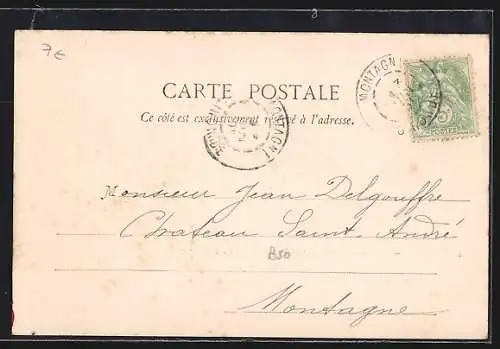 7€
CARTE POSTALE
Ce côté est exclusivement réservé à l'adresse.
MONTAGN
MONTAGN
5
POSTES
Monsieur Jean Delgouffre
Chateau Saint-André
B50
Montagne